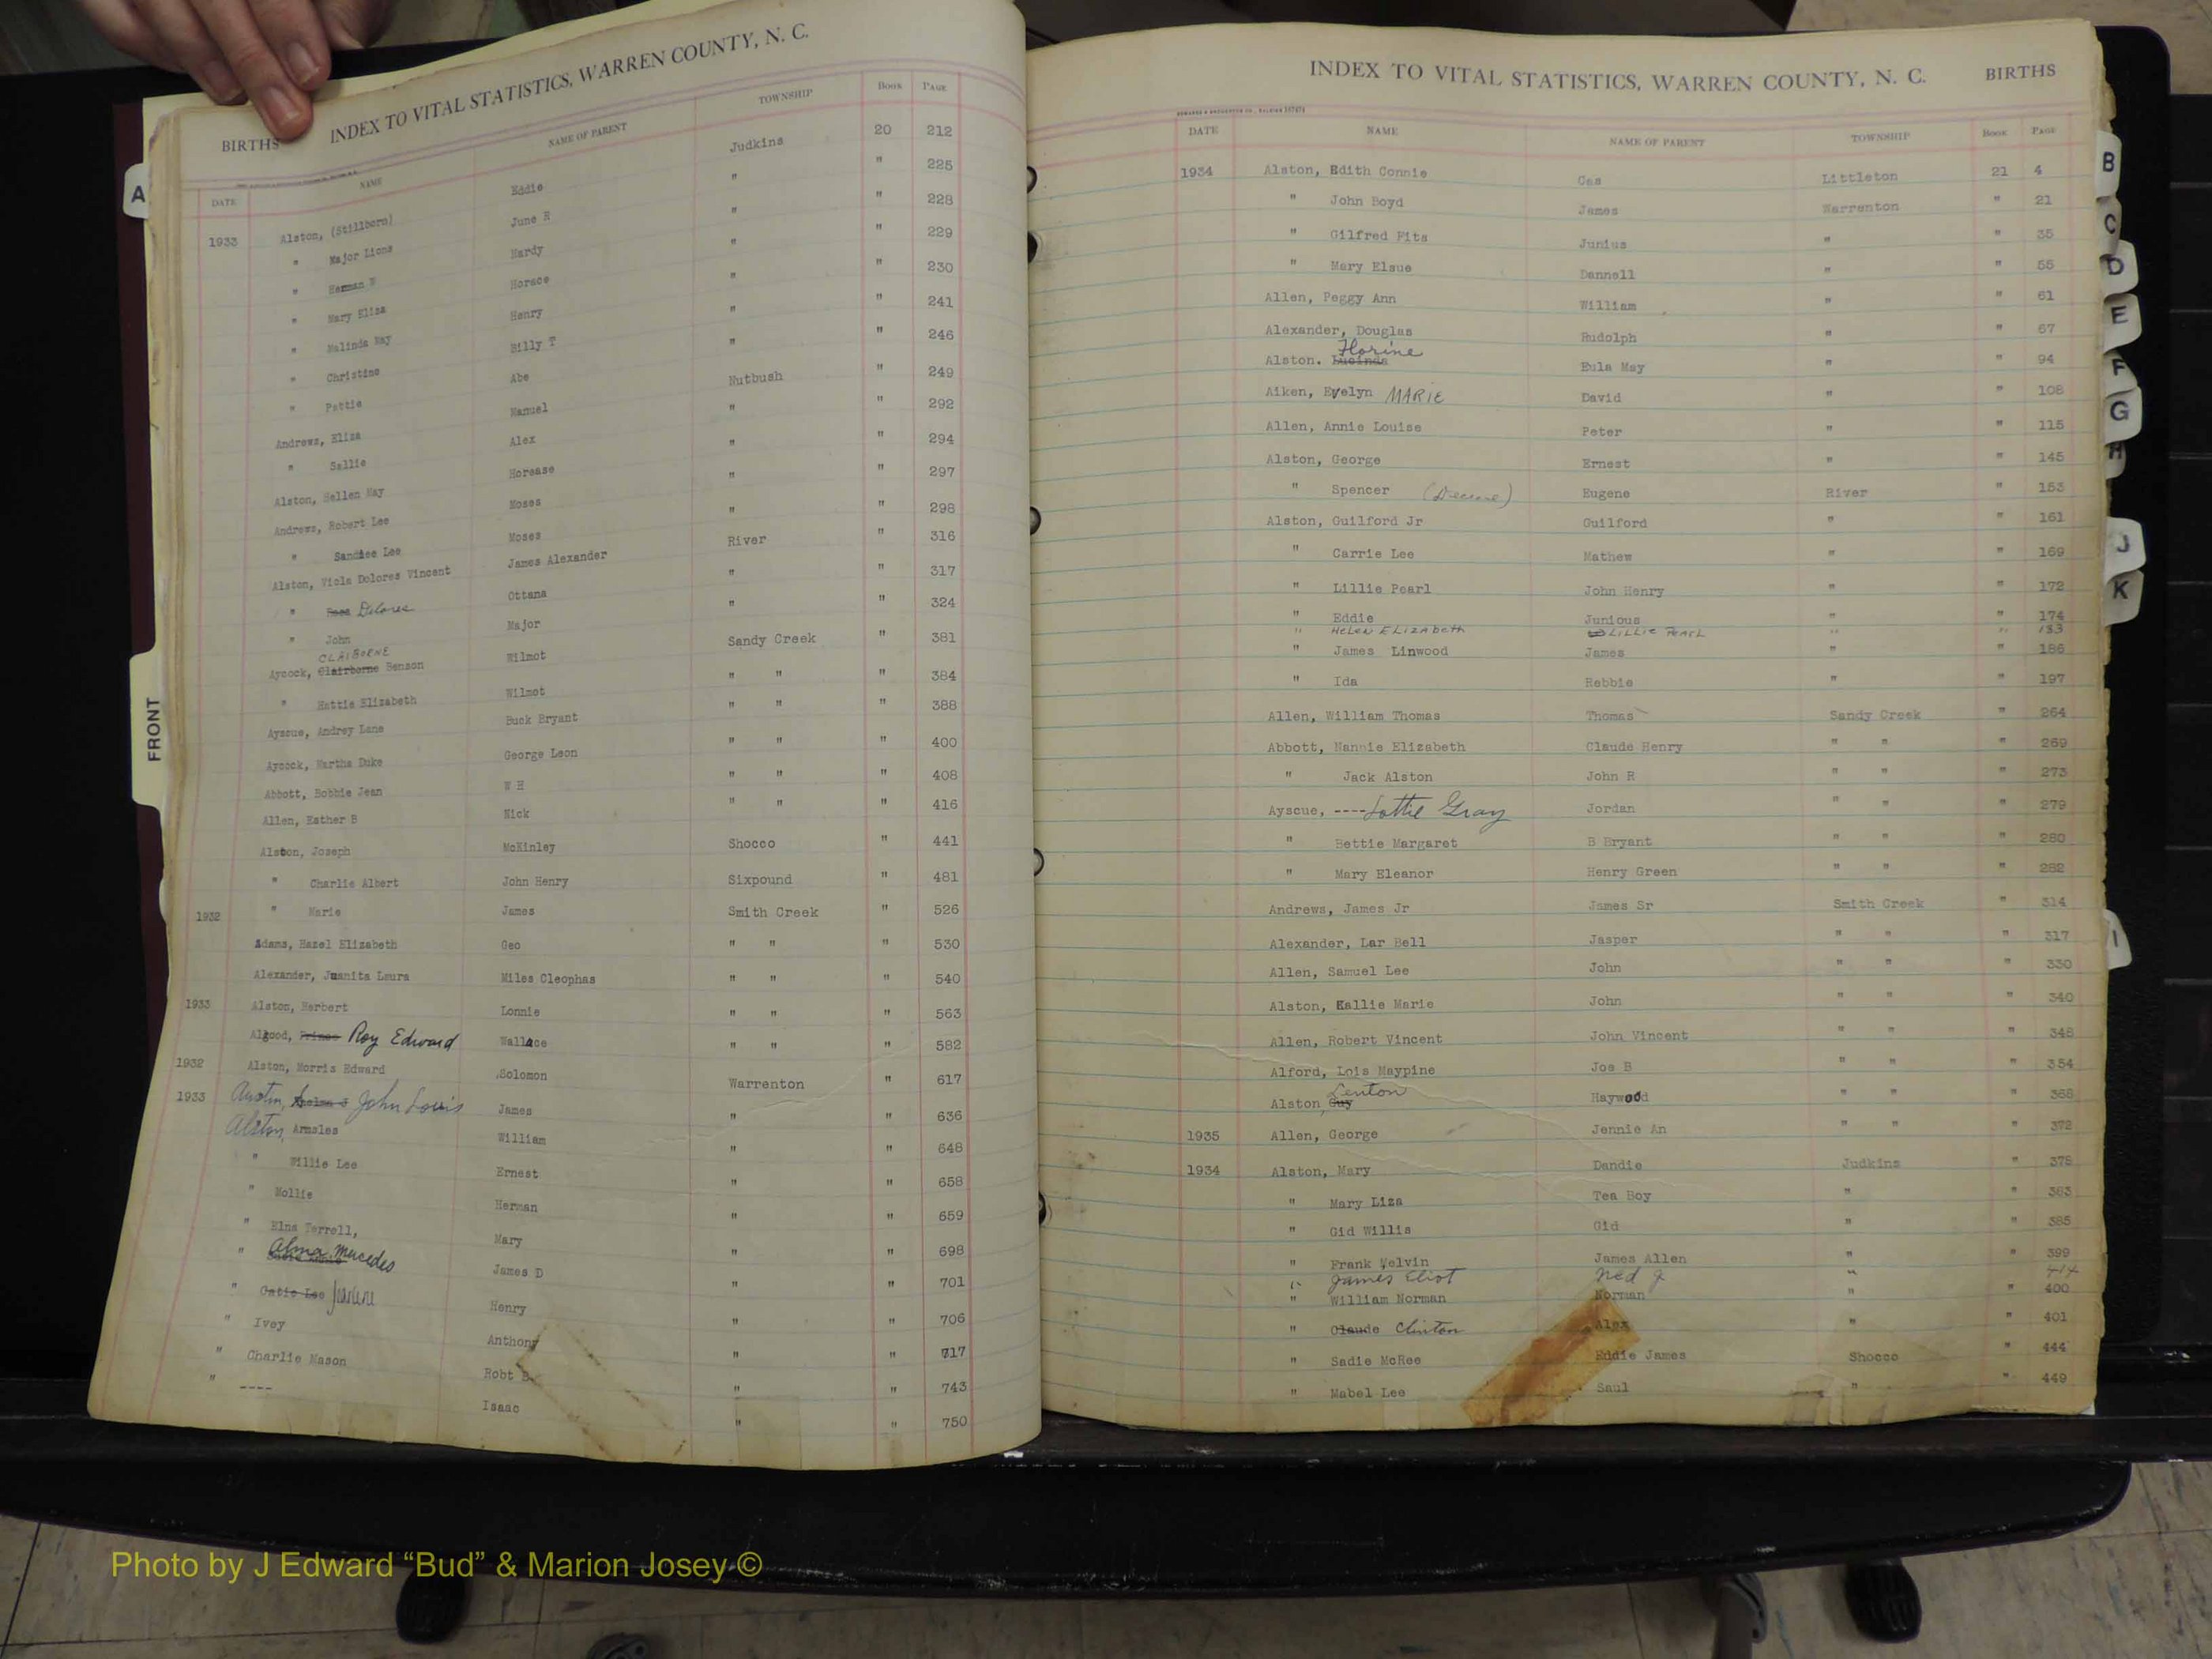 BIRTHS INDEX TO VITAL STATISTICS, WARREN COUNTY, N. C.
DATE NAME NAME OF PARENT TOWNSHIP BOOK PAGE
1933 Alston, (Stillborn) Eddie Judkins 20 212
" Major Lions June H " " 225
" Herman W Hardy " " 228
" Mary Eliza Horace " " 229
" Malinda May Henry " " 230
" Christine Billy T " " 241
" Pattie Abe " " 246
Andrews, Eliza Manuel Nutbush " 249
" Sallie Alex " " 292
Alston, Hellen May Horease " " 294
Andrews, Robert Lee Moses " " 297
" Sandiee Lee Moses " " 298
Alston, Viola Dolores Vincent James Alexander River " 316
" Rosa Delores Ottana " " 317
" John Major " " 324
CLAIBORNE
Aycock, Clairborne Benson Wilmot Sandy Creek " 381
" Hattie Elizabeth Wilmot " " " 384
Ayscue, Andrey Lane Buck Bryant " " " 388
Aycock, Martha Duke George Leon " " " 400
Abbott, Bobbie Jean W H " " " 408
Allen, Esther B Nick " " " 416
Alston, Joseph McKinley Shocco " 441
" Charlie Albert John Henry Sixpound " 481
1932 " Marie James Smith Creek " 526
Adams, Hazel Elizabeth Geo " " " 530
Alexander, Juanita Laura Miles Cleophas " " " 540
1933 Alston, Herbert Lonnie " " " 563
Algood, Prince Roy Edward Wallace " " " 582
1932 Alston, Morris Edward Solomon Warrenton " 617
1933 Austin, John Louis James " " 636
Alston, Armsles William " " 648
" Willie Lee Ernest " " 658
" Mollie Herman " " 659
" Elna Terrell, Mary " " 698
" Alma Mercedes James D " " 701
" Catie Lee Henry " " 706
" Ivey Anthony " " 717
" Charlie Mason Robt B. " " 743
" ---- Isaac " " 750
INDEX TO VITAL STATISTICS, WARREN COUNTY, N. C. BIRTHS
DATE NAME NAME OF PARENT TOWNSHIP BOOK PAGE
1934 Alston, Edith Connie Gas Littleton 21 4
" John Boyd James Warrenton " 21
" Gilfred Fits Junius " " 35
" Mary Elsue Dannell " " 55
Allen, Peggy Ann William " " 61
Alexander, Douglas Rudolph " " 67
Florine
Alston. Lucinda Eula May " " 94
Aiken, Evelyn MARIE David " " 108
Allen, Annie Louise Peter " " 115
Alston, George Ernest " " 145
" Spencer Eugene River " 153
Alston, Guilford Jr Guilford " " 161
" Carrie Lee Mathew " " 169
" Lillie Pearl John Henry " " 172
" Eddie Junious " " 174
" HELEN ELIZABETH LILLIE PEARL " " 183
" James Linwood James " " 186
" Ida Hebbie " " 197
Allen, William Thomas Thomas Sandy Creek " 264
Abbott, Nannie Elizabeth Claude Henry " " " 269
" Jack Alston John R " " " 273
Ayscue, ---- Lottie Gray Jordan " " " 279
" Bettie Margaret B Bryant " " " 280
" Mary Eleanor Henry Green " " " 282
Andrews, James Jr James Sr Smith Creek " 314
Alexander, Lar Bell Jasper " " " 317
Allen, Samuel Lee John " " " 330
Alston, Kallie Marie John " " " 340
Allen, Robert Vincent John Vincent " " " 348
Alford, Lois Maypine Joe B " " " 354
Lenton
Alston, Guy Haywood " " " 368
1935 Allen, George Jennie An " " " 372
1934 Alston, Mary Dandie Judkins " 378
" Mary Liza Tea Boy " " 383
" Gid Willis Gid " " 385
" Frank Melvin James Allen " " 399
" James Eliot Ned J " 414
" William Norman Norman " " 400
" Claude Clinton Alex " " 401
" Sadie McRee Eddie James Shocco " 444
" Mabel Lee Saul " " 449
A
FRONT
B
C
D
E
F
G
H
J
K
I
Photo by J Edward “Bud” & Marion Josey ©